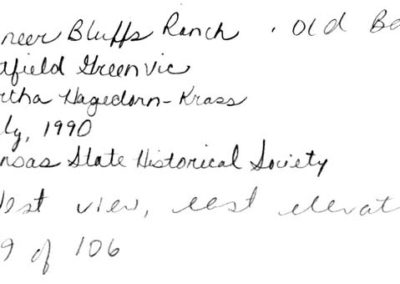 neer Bluffs Ranch . Old Ba
tfield Greenvic
rtha Hagedorn-Krass
ly, 1990
nsas State Historical Society
est view, east elevat
9 of 106